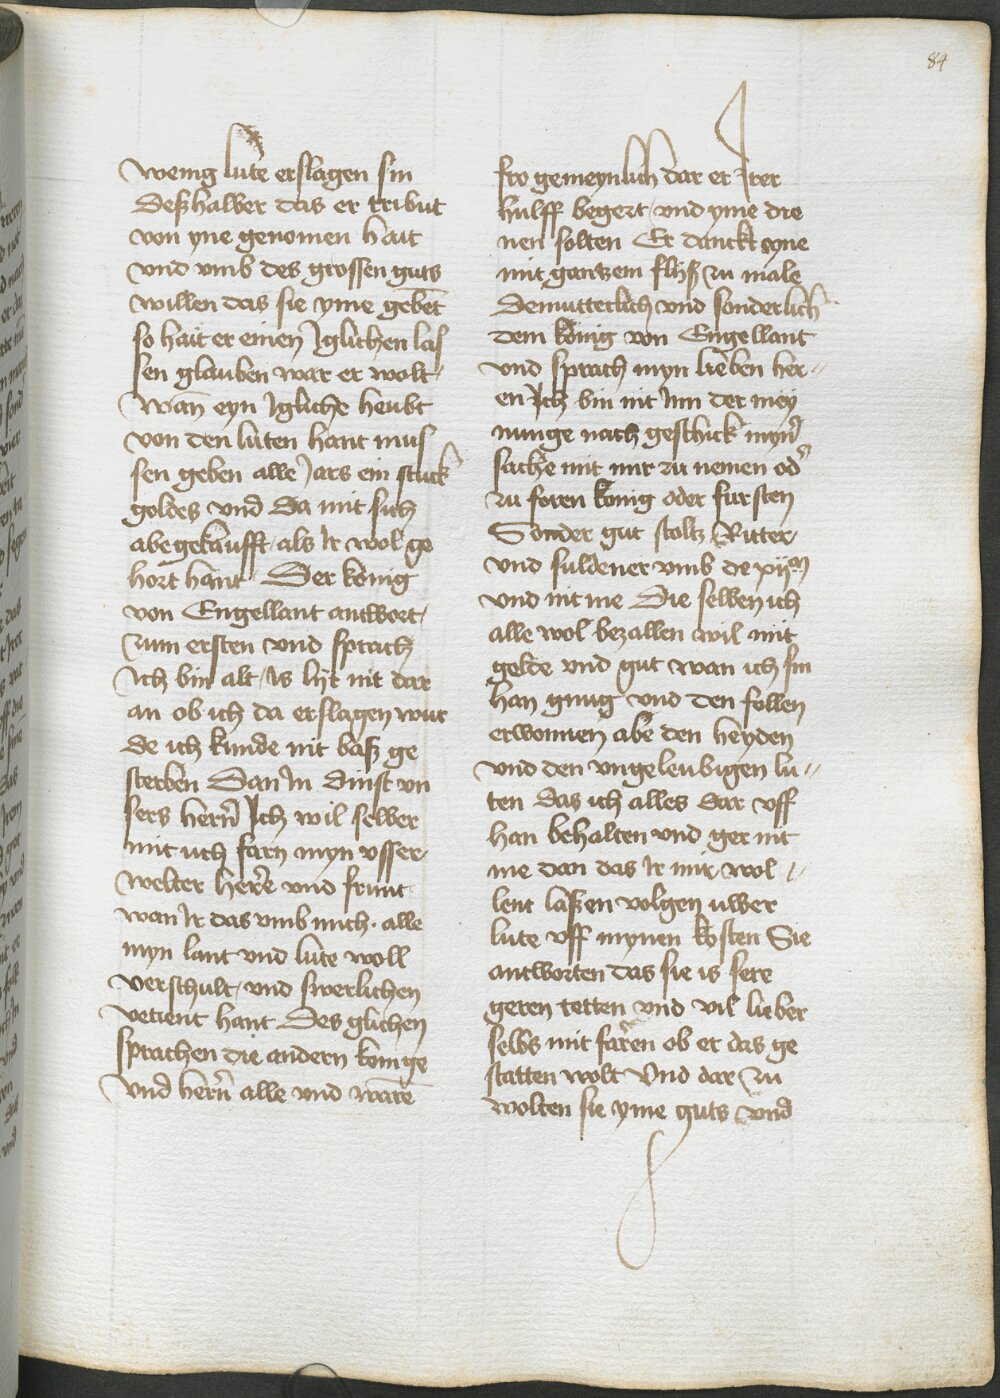 84
wenig lute erslagen sin
Deßhalber das er tribut
von yne genomen hait
vnd vmb des grossen guts
willen das sie yme gebe͞t
so hait er einen Jglichen las
sen glauben war er wolt
wan̄ eyn Jgliche heubt
von den luten hant mus
sen geben alle Jars ein stuck
goldes vnd Da mit sich
abegekaufft als Jr wol ge
hort hant Der konig
von Engellant antwort
zum ersten vnd sprach
Ich bin alt is lyt nit dar
an ob ich da erslagen wur
de ich kunde nit baß ge
sterben Dan Jn dinst vn
sers hern̄ Ich wil selber
mit uch farn myn vsser
welter here vnd frunt
wan Jr das vmb mich alle
myn lant vnd lute woll
verschult vnd swerlichen
vetient hant Des glichen
sprachen die andern konige
Vnd hern̄ alle vnd ware͞
fro gemeynlich dar er Irer
hulff begert vnd yme die
nen solten Er danckt yne
mit gantzem flyß zu male
Demutterlich vnd sonderlich
dem konig von Engellant
vnd sprach myn lieben her〃
en Ich bin nit Jnn der mey
nunge nach geschick myn̄
sache mit mir zu nemen od̕
zu foren konig oder fursten
Sonder gut stoltz Ritter
vnd suldener vmb de xijm
vnd nit me Die selben ich
alle wol bezallen wil mit
gelde vnd gut wan ich sin
han gnug vnd den follen
erwonnen abe den heyden
vnd den vngeleubigen lu〃
ten Das ich alles Dar vff
han behalten vnd ger nit
me dan das Jr mir wol〃
lent laßen volgen uwer
lute vff mynen kosten Sie
antworten das sie is sere
geren tetten vnd vil lieber
selbs mit faren ob er das ge
statten wolt Vnd dar zu
wolten sie yme guts vnd